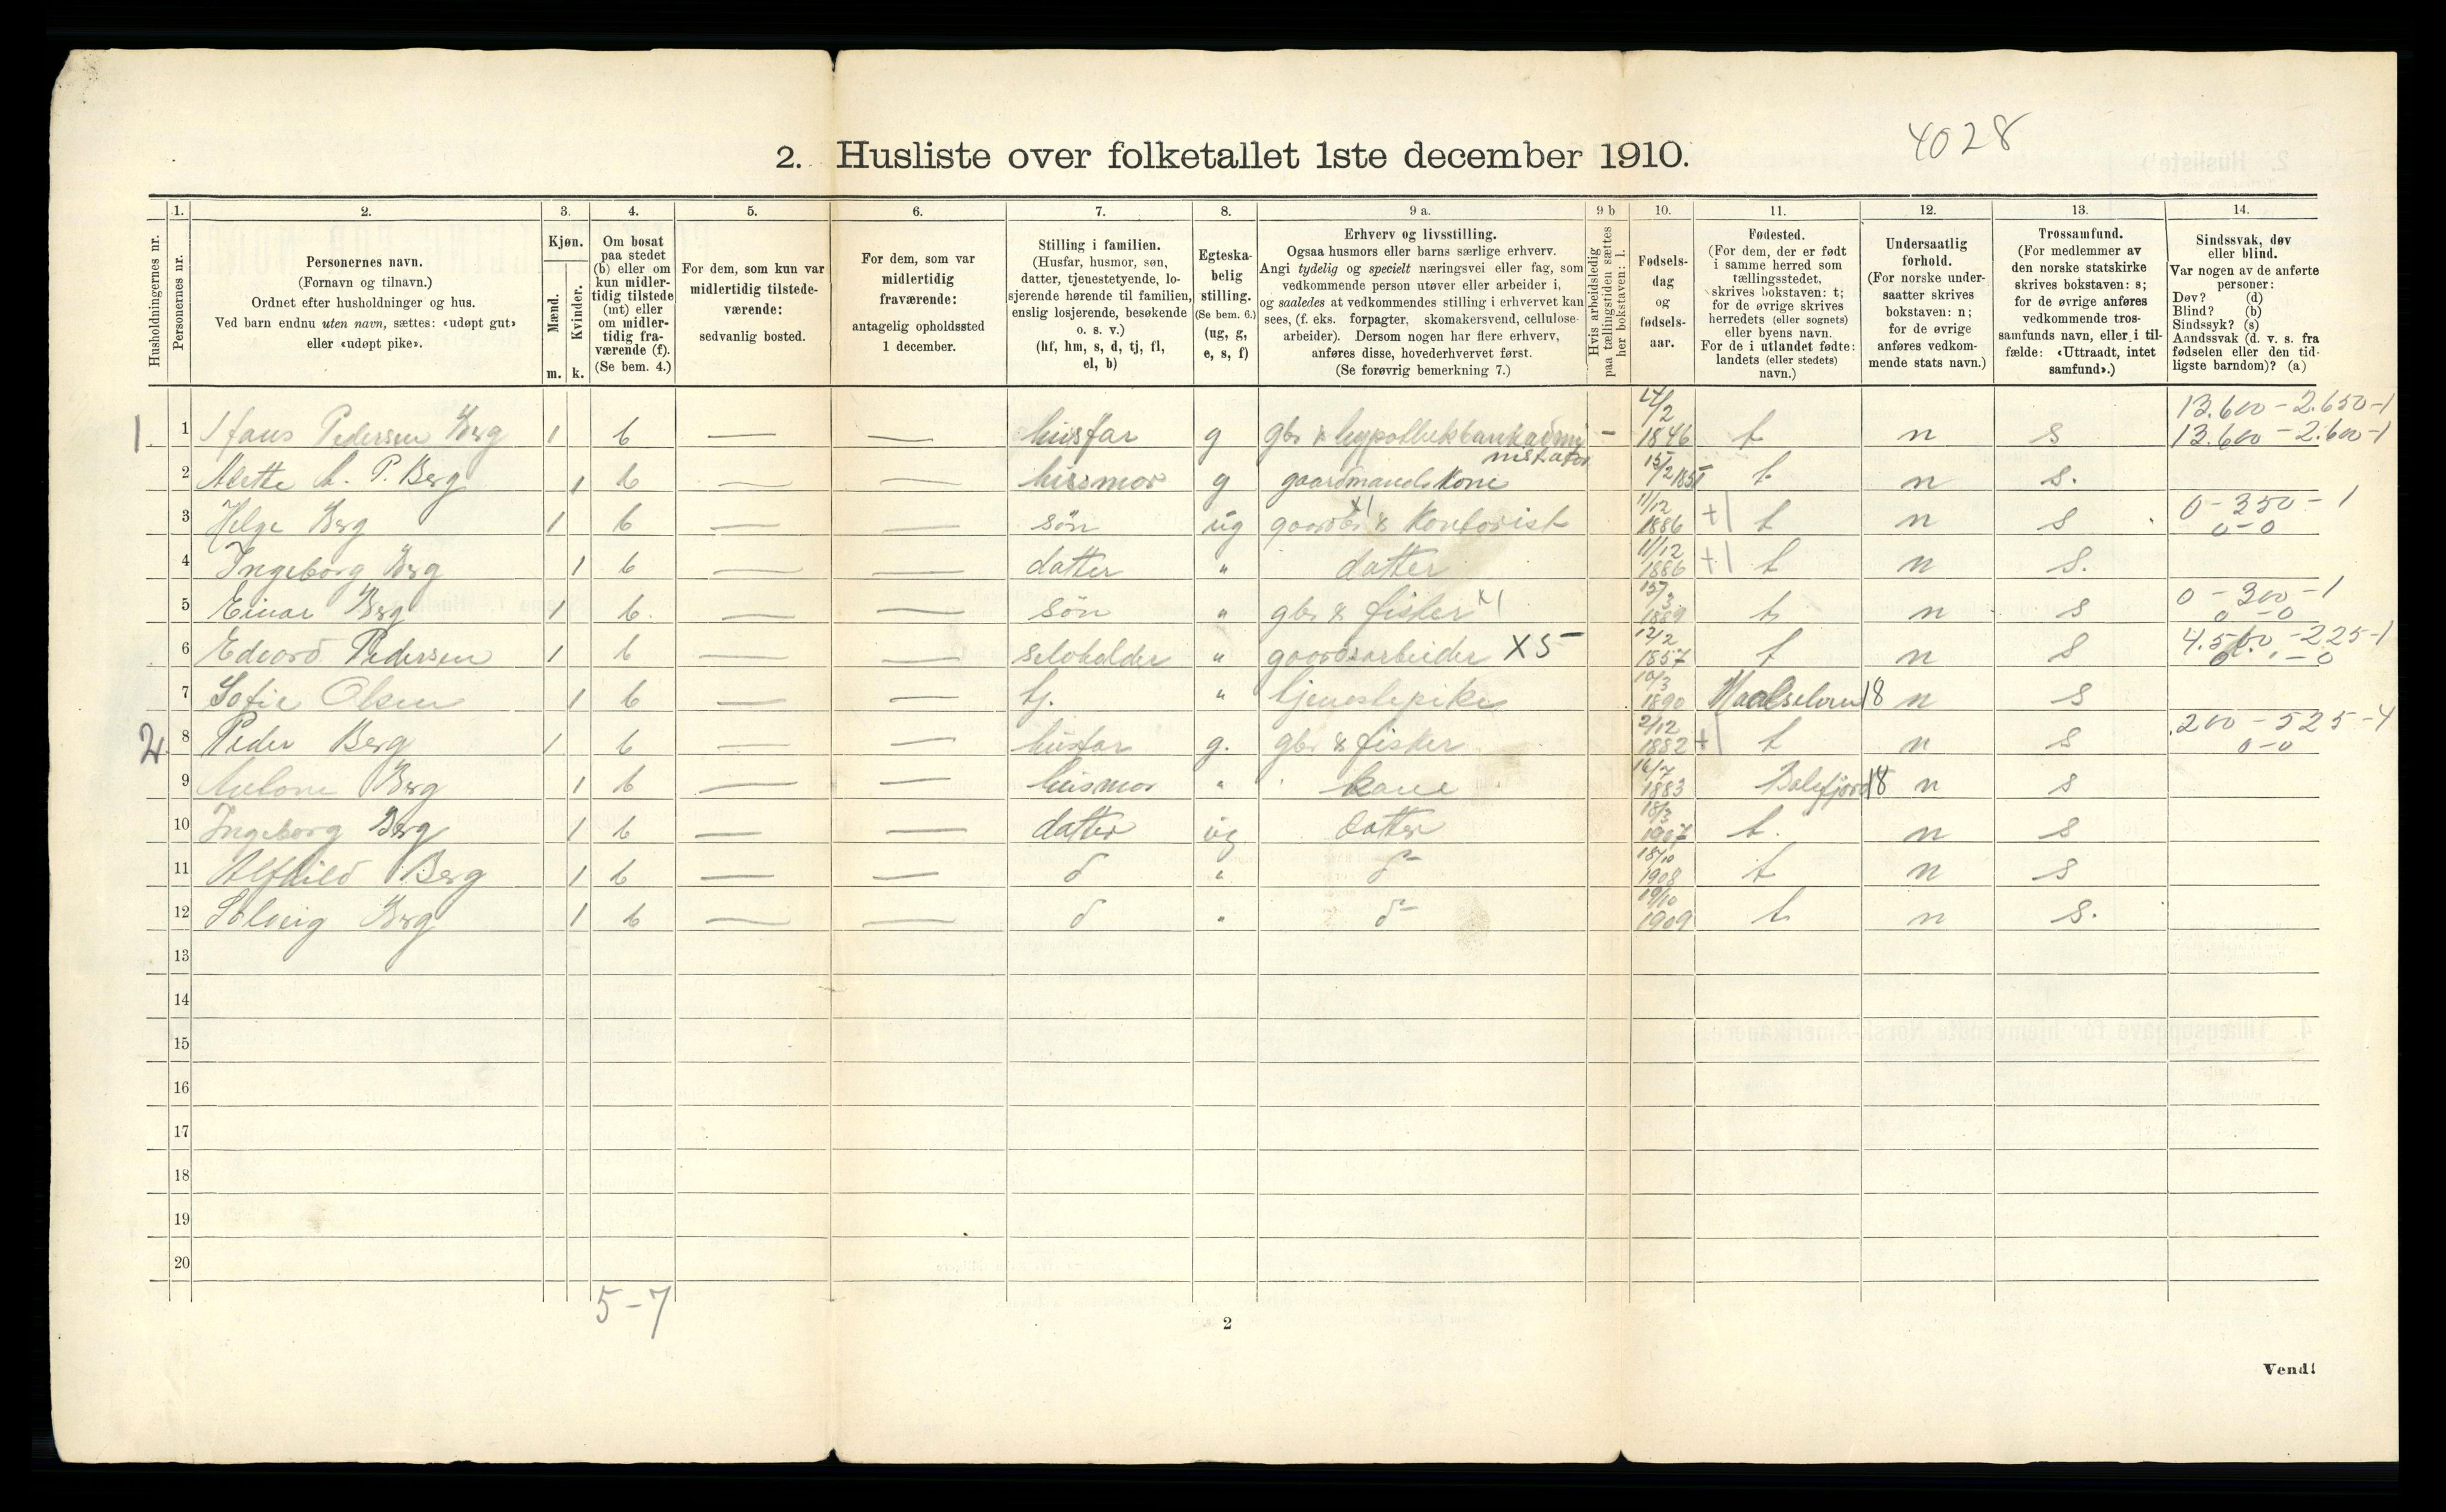 4028
2. Husliste over folketallet 1ste december 1910.
Husholdningernes nr.
1.
Personernes nr.
2.
Personernes navn.
(Fornavn og tilnavn.)
Ordnet efter husholdninger og hus.
Ved barn endnu uten navn, sættes: «udøpt gut»
eller «udøpt pike».
3.
Kjøn.
Mænd.
Kvinder.
m. k.
4.
Om bosat
paa stedet
(b) eller om
kun midler-
tidig tilstede
(mt) eller
om midler-
tidig fra-
værende (f).
(Se bem. 4.)
5.
For dem, som kun var
midlertidig tilstede-
værende:
sedvanlig bosted.
6.
For dem, som var
midlertidig
fraværende:
antagelig opholdssted
1 december.
7.
Stilling i familien.
(Husfar, husmor, søn,
datter, tjenestetyende, lo-
sjerende hørende til familien,
enslig losjerende, besøkende
o. s. v.)
(hf, hm, s, d, tj, fl,
el, b)
8.
Egteska-
belig
stilling.
(Se bem. 6.)
(ug, g,
e, s, f)
9 a.
Erhverv og livsstilling.
Ogsaa husmors eller barns særlige erhverv.
Angi tydelig og specielt næringsvei eller fag, som
vedkommende person utøver eller arbeider i,
og saaledes at vedkommendes stilling i erhvervet kan
sees, (f. eks. forpagter, skomakersvend, cellulose-
arbeider). Dersom nogen har flere erhverv,
anføres disse, hovederhvervet først.
(Se forøvrig bemerkning 7.)
9 b
Hvis arbeidsledig
paa tællingstiden sættes
her bokstaven: l.
10.
Fødsels-
dag
og
fødsels-
aar.
11.
Fødested.
(For dem, der er født
i samme herred som
tællingsstedet,
skrives bokstaven: t;
for de øvrige skrives
herredets (eller sognets)
eller byens navn.
For de i utlandet fødte:
landets (eller stedets)
navn.)
12.
Undersaatlig
forhold.
(For norske under-
saatter skrives
bokstaven: n;
for de øvrige
anføres vedkom-
mende stats navn.)
13.
Trossamfund.
(For medlemmer av
den norske statskirke
skrives bokstaven: s;
for de øvrige anføres
vedkommende tros-
samfunds navn, eller i til-
fælde: «Uttraadt, intet
samfund».)
14.
Sindssvak, døv
eller blind.
Var nogen av de anførte
personer:
Døv? (d)
Blind? (b)
Sindssyk? (s)
Aandssvak (d. v. s. fra
fødselen eller den tid-
ligste barndom)? (a)
1. 1 Hans Pedersen Berg 1 b — — husfar g gbr & hypothekbankadmi nistrator – /2 1846 t n s 13.600 - 2.650 - 1 13.600 - 2.600 - 1
2 Mette P. Berg 1 b — — husmor g gaardmandskone 15/2 1851 t n s.
3 Helge Berg 1 b — — søn ug gaardbr x1 & Kontorist 11/12 1886 +1 t n s 0 - 350 - 1 0-0
4 Ingeborg Berg 1 b — — datter " datter 11/12 1886 +1 t n s.
5 Einar Berg 1 b. — — søn " gbr & fisker x1 15/3 1889 t n s 0 - 300 - 1 0-0
6 Edvard Pedersen 1 b — — selvholder " gaardsarbeider X5 12/2 1857 t n s 4.500. - 225-1 0 - 0
7 Sofie Olsen 1 b — — tj. " tjenestepike 10/3 1890 Maalselven 18 n s
2. 8 Peder Berg 1 b — — husfar g. gbr & fisker 2/12 1882 +1 t n s .200 - 525 - 4 0-0
9 Berg 1 b — — husmor " kone 16/7 1883 Balsfjord 18 n s
10 Ingeborg Berg 1 b — — datter ug datter 18/3 1907 t. n s
11 Alfhild Berg 1 b — — d " d- 18/10 1908 t n s
12 Solveig Berg 1 b — — d " d- 19/10 1909 t n s.
13
14
15
16
17
18
19
20
5-7
2
Vend!